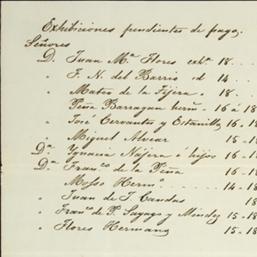 Exhibiciones pendientes de pago.
Señores
D. Juan Mª Flores exbª 18...
" F. N. del Barrio id 14...
" Mateo de la Tijera . 18.
" Peña Barragan herms 16 á 18
" José Cervantes y Estanillo 16-1
" Miguel Alvear 15-1
Dª Ygnacia Nájera é hijos 16-1
Dª Francª de la Peña 16-
" Mosso Hermº 14-18
" Juan de J. 18
" Franco de P. Sayago y Mendez 15-18
" Flores Hermano 15-18